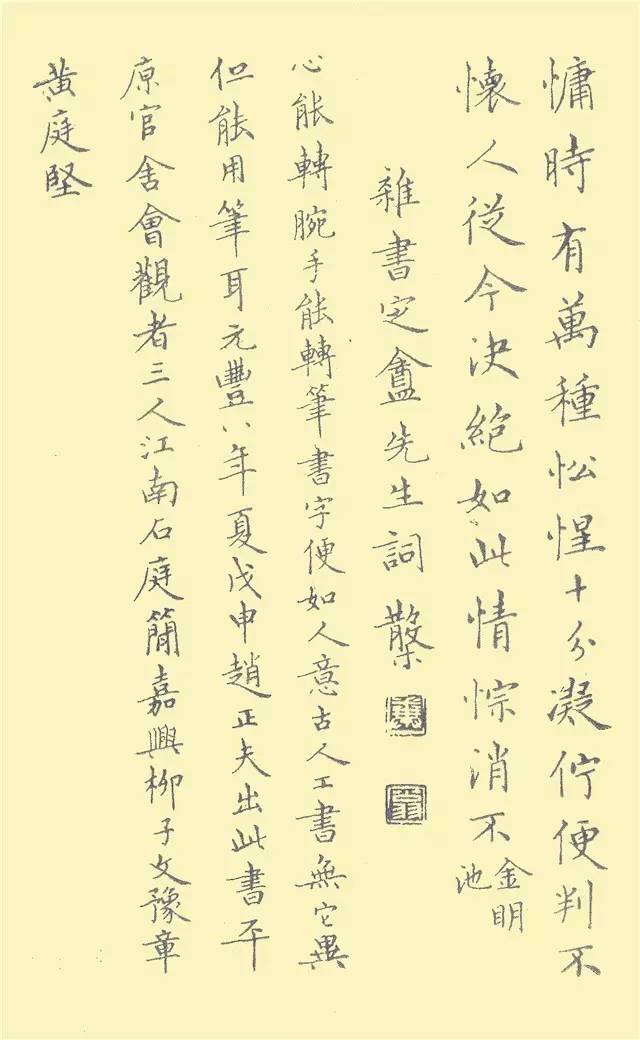 慵時有萬種惺忪十分凝佇便判不
懷人從今決絕如此情悰消不 金明
池
雜書定盦先生詞
心能轉腕手能轉筆書字便如人意古人工書無它異
但能用筆耳元豐八年夏戊申趙正夫出此書平
原官舍會觀者三人江南石庭簡嘉興柳子文豫章
黃庭堅